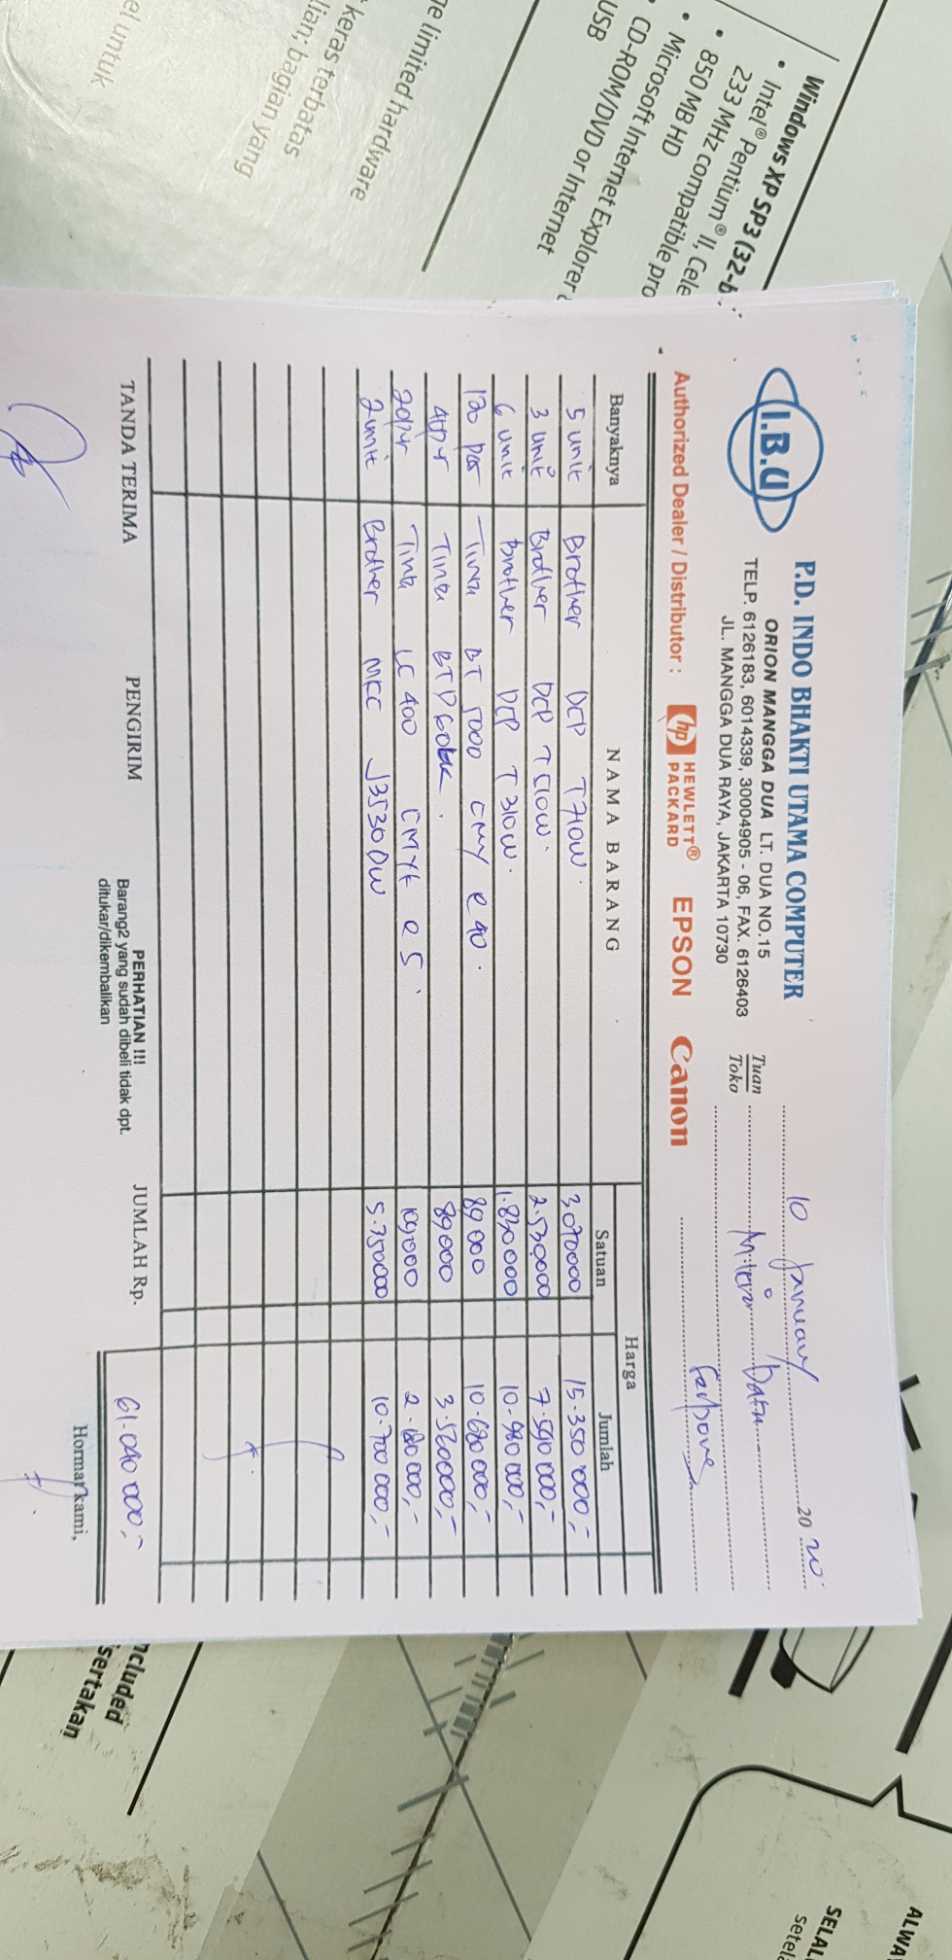 Windows XP SP3 (32-b
• Intel® Pentium® II, Cele
233 MHz compatible pro
• 850 MB HD
• Microsoft Internet Explorer
• CD-ROM/DVD or Internet
USB
ne limited hardware
keras terbatas
lian; bagian yang
el untuk
I.B.U
P.D. INDO BHAKTI UTAMA COMPUTER
ORION MANGGA DUA LT. DUA NO.15
TELP. 6126183, 6014339, 30004905 - 06, FAX. 6126403
JL. MANGGA DUA RAYA, JAKARTA 10730
10 January 20 20
Tuan
Toko
Mitera Data
Authorized Dealer / Distributor : hp HEWLETT® PACKARD EPSON Canon
Banyaknya NAMA BARANG Harga
Satuan Jumlah
5 unit Brother DCP T710W. 3.070000 15.350.000,-
3 unit Brother DCP T510W. 2.530000 7.590.000,-
6 unit Brother DCP T310W. 1.830000 10.980.000,-
120 pcs Tinta BT 5000 CMY @ 40. 89.000 10.680.000,-
Tinta BTD60BK. 89.000 3.560000,-
Tinta LC 400 CMYK @ 5
2 unit Brother MFC J3530DW 5.350000 10.700.000,-
TANDA TERIMA PENGIRIM
PERHATIAN !!!
Barang2 yang sudah dibeli tidak dpt.
ditukar/dikembalikan
JUMLAH Rp. 61.040.000,-
Hormat kami,
ncluded
sertakan
ALWA
SELAL
setel